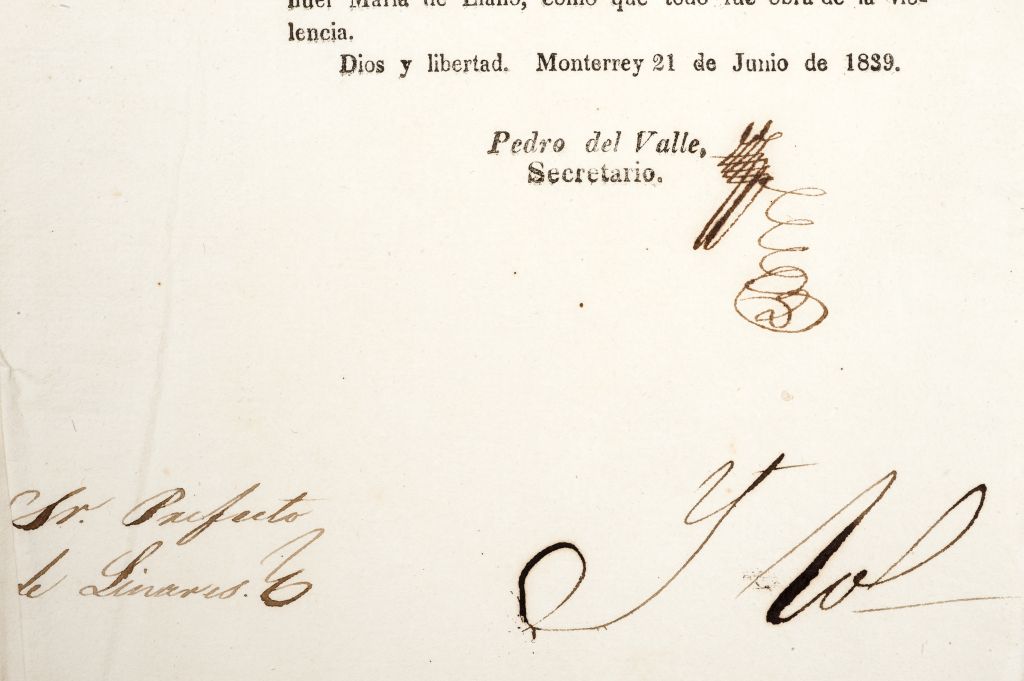 nuel Maria de Llano, como que todo fue obra de la vio-
lencia.
Dios y libertad. Monterrey 21 de Junio de 1839.
Pedro del Valle,
Secretario.
Sr. Prefecto
de Linares.